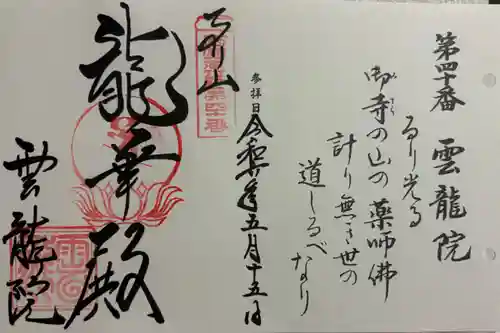 第四十番 雲龍院
るり光る
御寺の山の薬師佛
計り無き世の
道しるべなり
参拝日
令和六年五月十五日
るり山
龍華殿
雲龍院